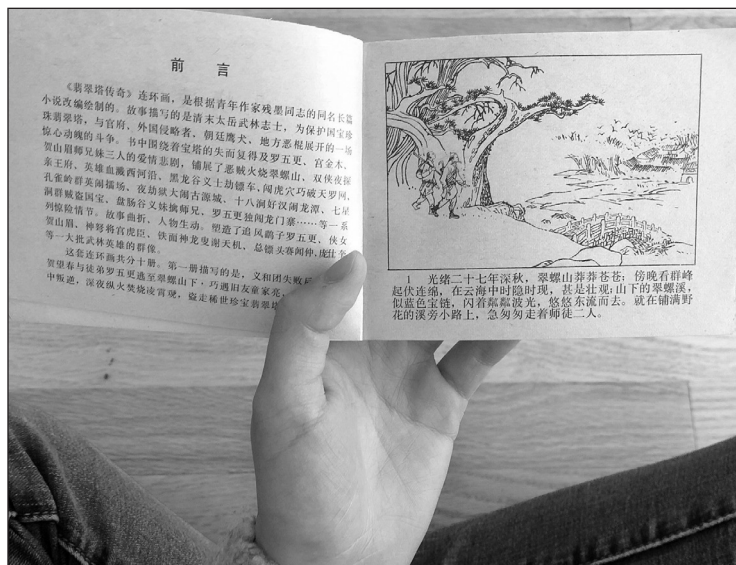 前 言
《翡翠塔传奇》连环画，是根据青年作家残墨同志的同名长篇
小说改编绘制的。故事描写的是清末太岳武林志士，为保护国宝珍
珠翡翠塔，与官府、外国侵略者、朝廷鹰犬、地方恶棍展开的一场
惊心动魄的斗争。书中围绕着宝塔的失而复得及罗五更、宫金木、
贺山眉师兄妹三人的爱情悲剧，铺展了恶贼火烧翠螺山、双侠夜探
亲王府、英雄血溅西河沿、黑龙谷义士劫镖车、闯虎穴巧破天罗网、
孔雀岭群英闹擂场、夜劫狱大闹古源城、十八涧好汉闹龙潭、七星
洞群贼盗国宝、盘肠谷义妹擒师兄、罗五更独闯龙门寨……等一系
列惊险情节。故事曲折，人物生动。塑造了追风鹞子罗五更、侠女
贺山眉、神弩将宫虎臣、铁面神龙叟谢天机、总镖头赛闻仲、庞仕奎
等一大批武林英雄的群像。
这套连环画共分十册。第一册描写的是，义和团失败
贺望春与徒弟罗五更逃至翠螺山下，巧遇旧友童家亮，
中叛逆，深夜纵火焚烧凌霄观，盗走稀世珍宝翡翠塔
1 光绪二十七年深秋，翠螺山莽莽苍苍；傍晚看群峰
起伏连绵，在云海中时隐时现，甚是壮观；山下的翠螺溪，
似蓝色宝链，闪着粼粼波光，悠悠东流而去。就在铺满野
花的溪旁小路上，急匆匆走着师徒二人。